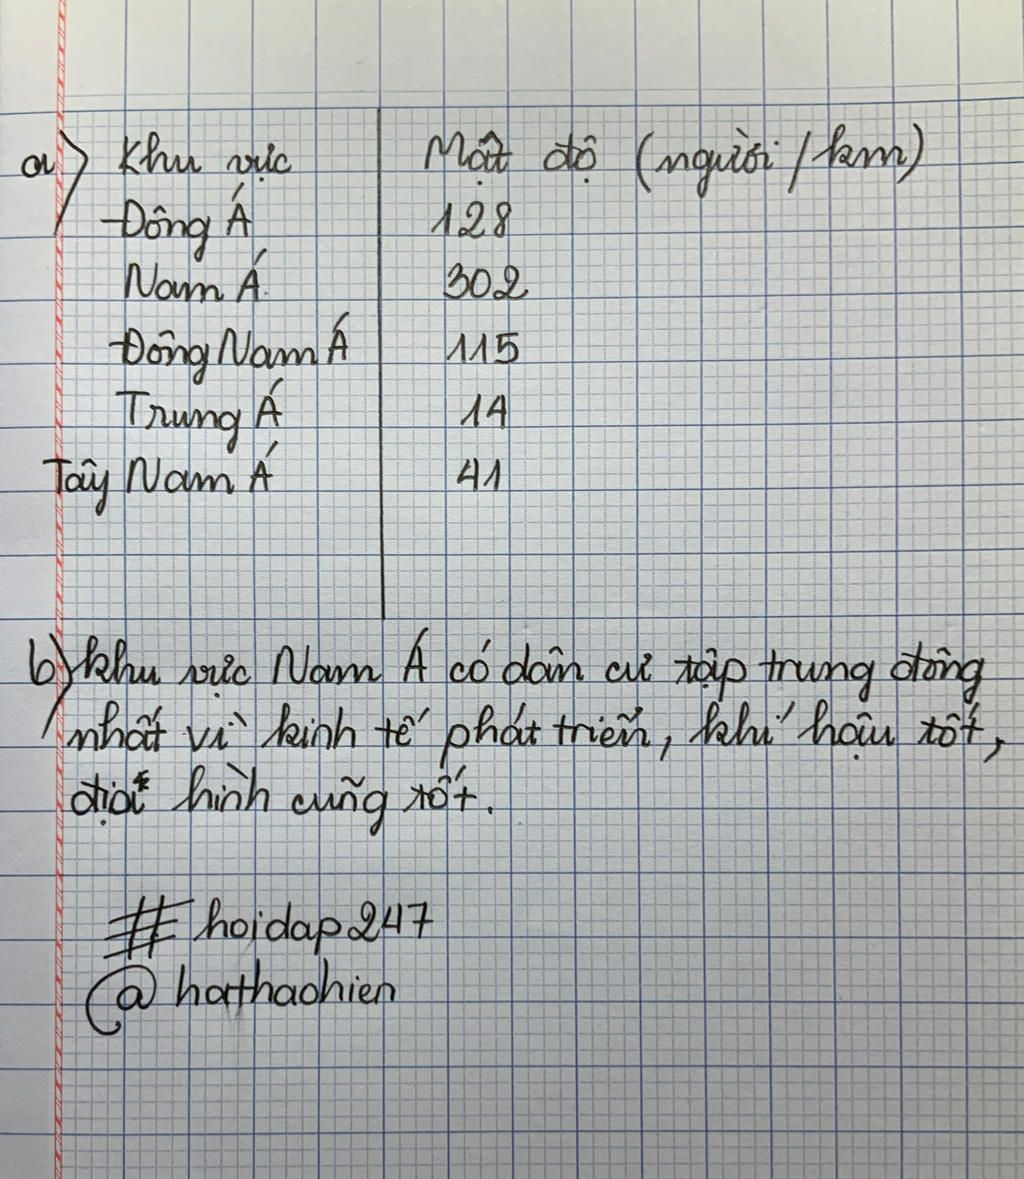 a) Khu vực Mật độ (người/km)
Đông Á 128
Nam Á 302
Đông Nam Á 115
Trung Á 14
Tây Nam Á 41
b) khu vực Nam Á có dân cư tập trung đông
nhất vì kinh tế phát triển, khí hậu tốt,
địa hình cũng tốt.
# hoidap247
@ hathaohien